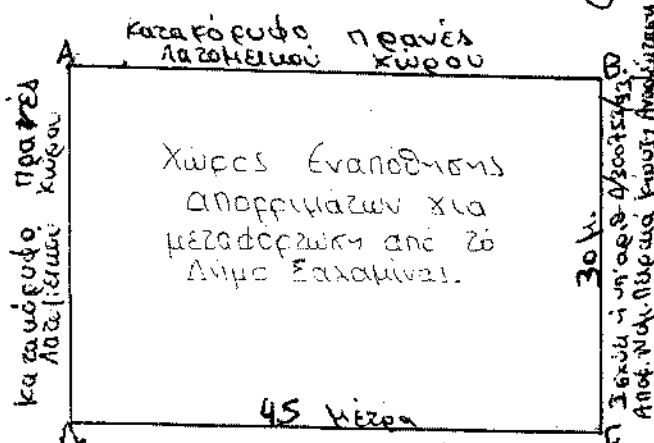 Κατακόρυφο πρανές
Λατομεικού χώρου
Α
Β
Κατακόρυφο πρανές
Λατομεικού χώρου
Χώρος Εναπόθησης
απορριμάτων για
μεταφόρτωση από το
Δήμο Σαλαμίνας.
30 μ.
45 μέτρα
Δ
Γ
Ισχύει η υπ' αριθ. Δ/30075/93
Αποφ. Νομ. Πειραιά